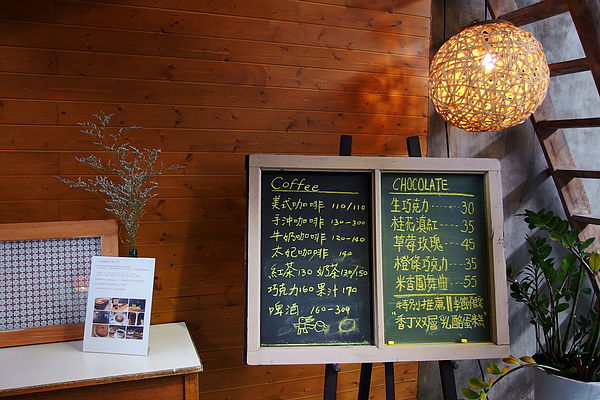 Coffee
美式咖啡 110/110
手沖咖啡 130-300
牛奶咖啡 120-140
太妃咖啡 140
紅茶130 奶茶130/150
巧克力160 果汁170
啤酒 160-300
CHOCOLATE
生巧克力-----30
桂花滇紅----35
草莓玫瑰----45
橙條巧克力---35
米吉圓舞曲---55
特別推薦!!季節限定
"香丁双層乳酪蛋糕